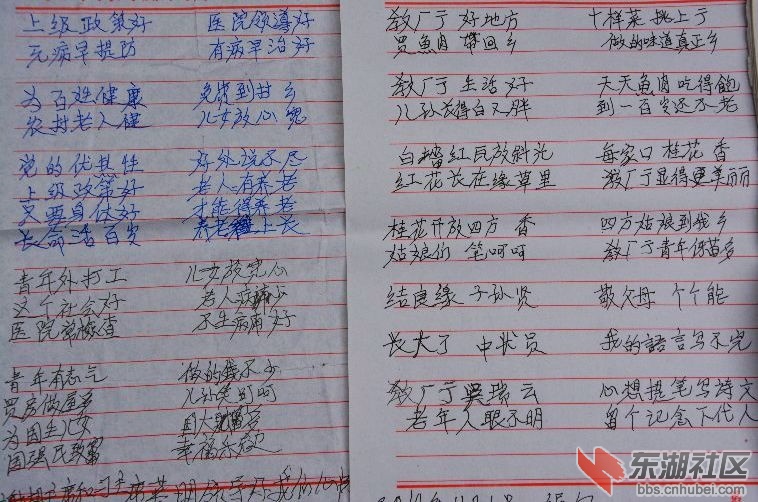 上级政策好 医院领导好
无病早提防 有病早治好
为百姓健康 免费到村乡
农村老人健 儿女放心宽
党的优越性 好处说不尽
上级政策好 老人有养老
只要身体好 才能得养老
长命活百岁 养老 上长
青年外打工 儿女放宽心
这个社会好 老人病痛少
医院常检查 不生病痛好
青年有志气 做的 不少
买房做屋多 儿孙笑呵呵
为国生儿女 国大
国强民致富 幸福乐
敖厂于 好地方 十样菜 挑上于
买鱼肉 带回乡 做的味道真正乡
敖厂于 生活好 天天鱼肉吃得饱
儿孙长得白又胖 到一百岁还不老
白墙红瓦放斜光 每家口 桂花香
红花长在绿草里 敖厂于显得更美丽
桂花开放四方香 四方姑娘到我乡
姑娘们 笑呵呵 敖厂于青年 苗多
结良缘 子孙贤 敬父母 个个能
长大了 中状员 我的語言写不完
敖厂于 吴瑞云 心想提笔写诗文
老年人眼不明 留个记念下代人
东湖社区
bbs.cnhubei.com